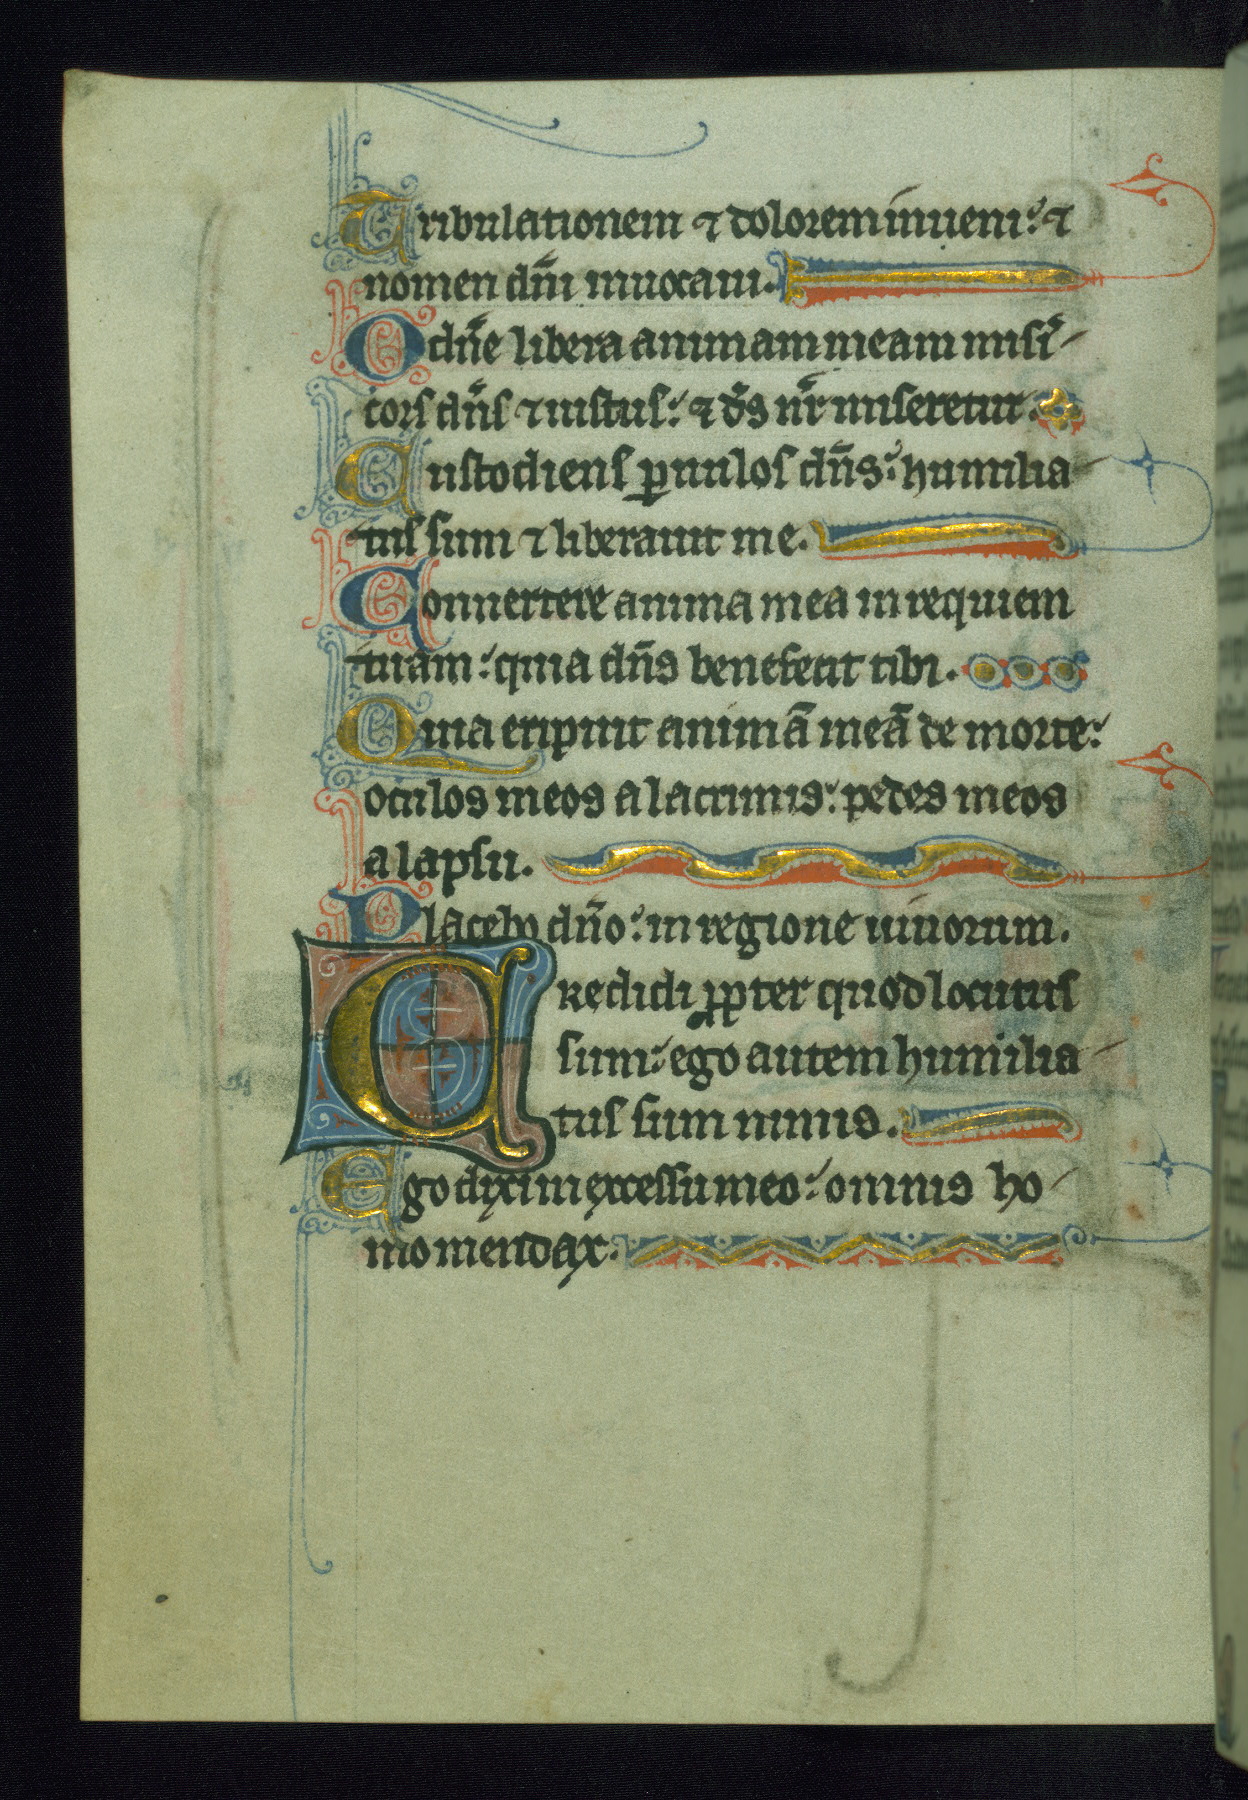 Tribulationem ⁊ dolorem inueni: ⁊
nomen dñi inuocaui.
O dñe libera animam meam misi
cors dñs ⁊ iustus: ⁊ d̄s nr̄ miseretur.
Custodiens paruulos dñs: humilia
tus sum ⁊ liberauit me.
Conuertere anima mea in requiem
tuam: quia dñs benefecit tibi.
Quia eripuit animā meā de morte:
oculos meos a lacrimis: pedes meos
a lapsu.
Placebo dño: in regione uiuorum.
Credidi propter quod locutus
sum: ego autem humilia
tus sum nimis.
Ego dixi in excessu meo: omnis ho
mo mendax.